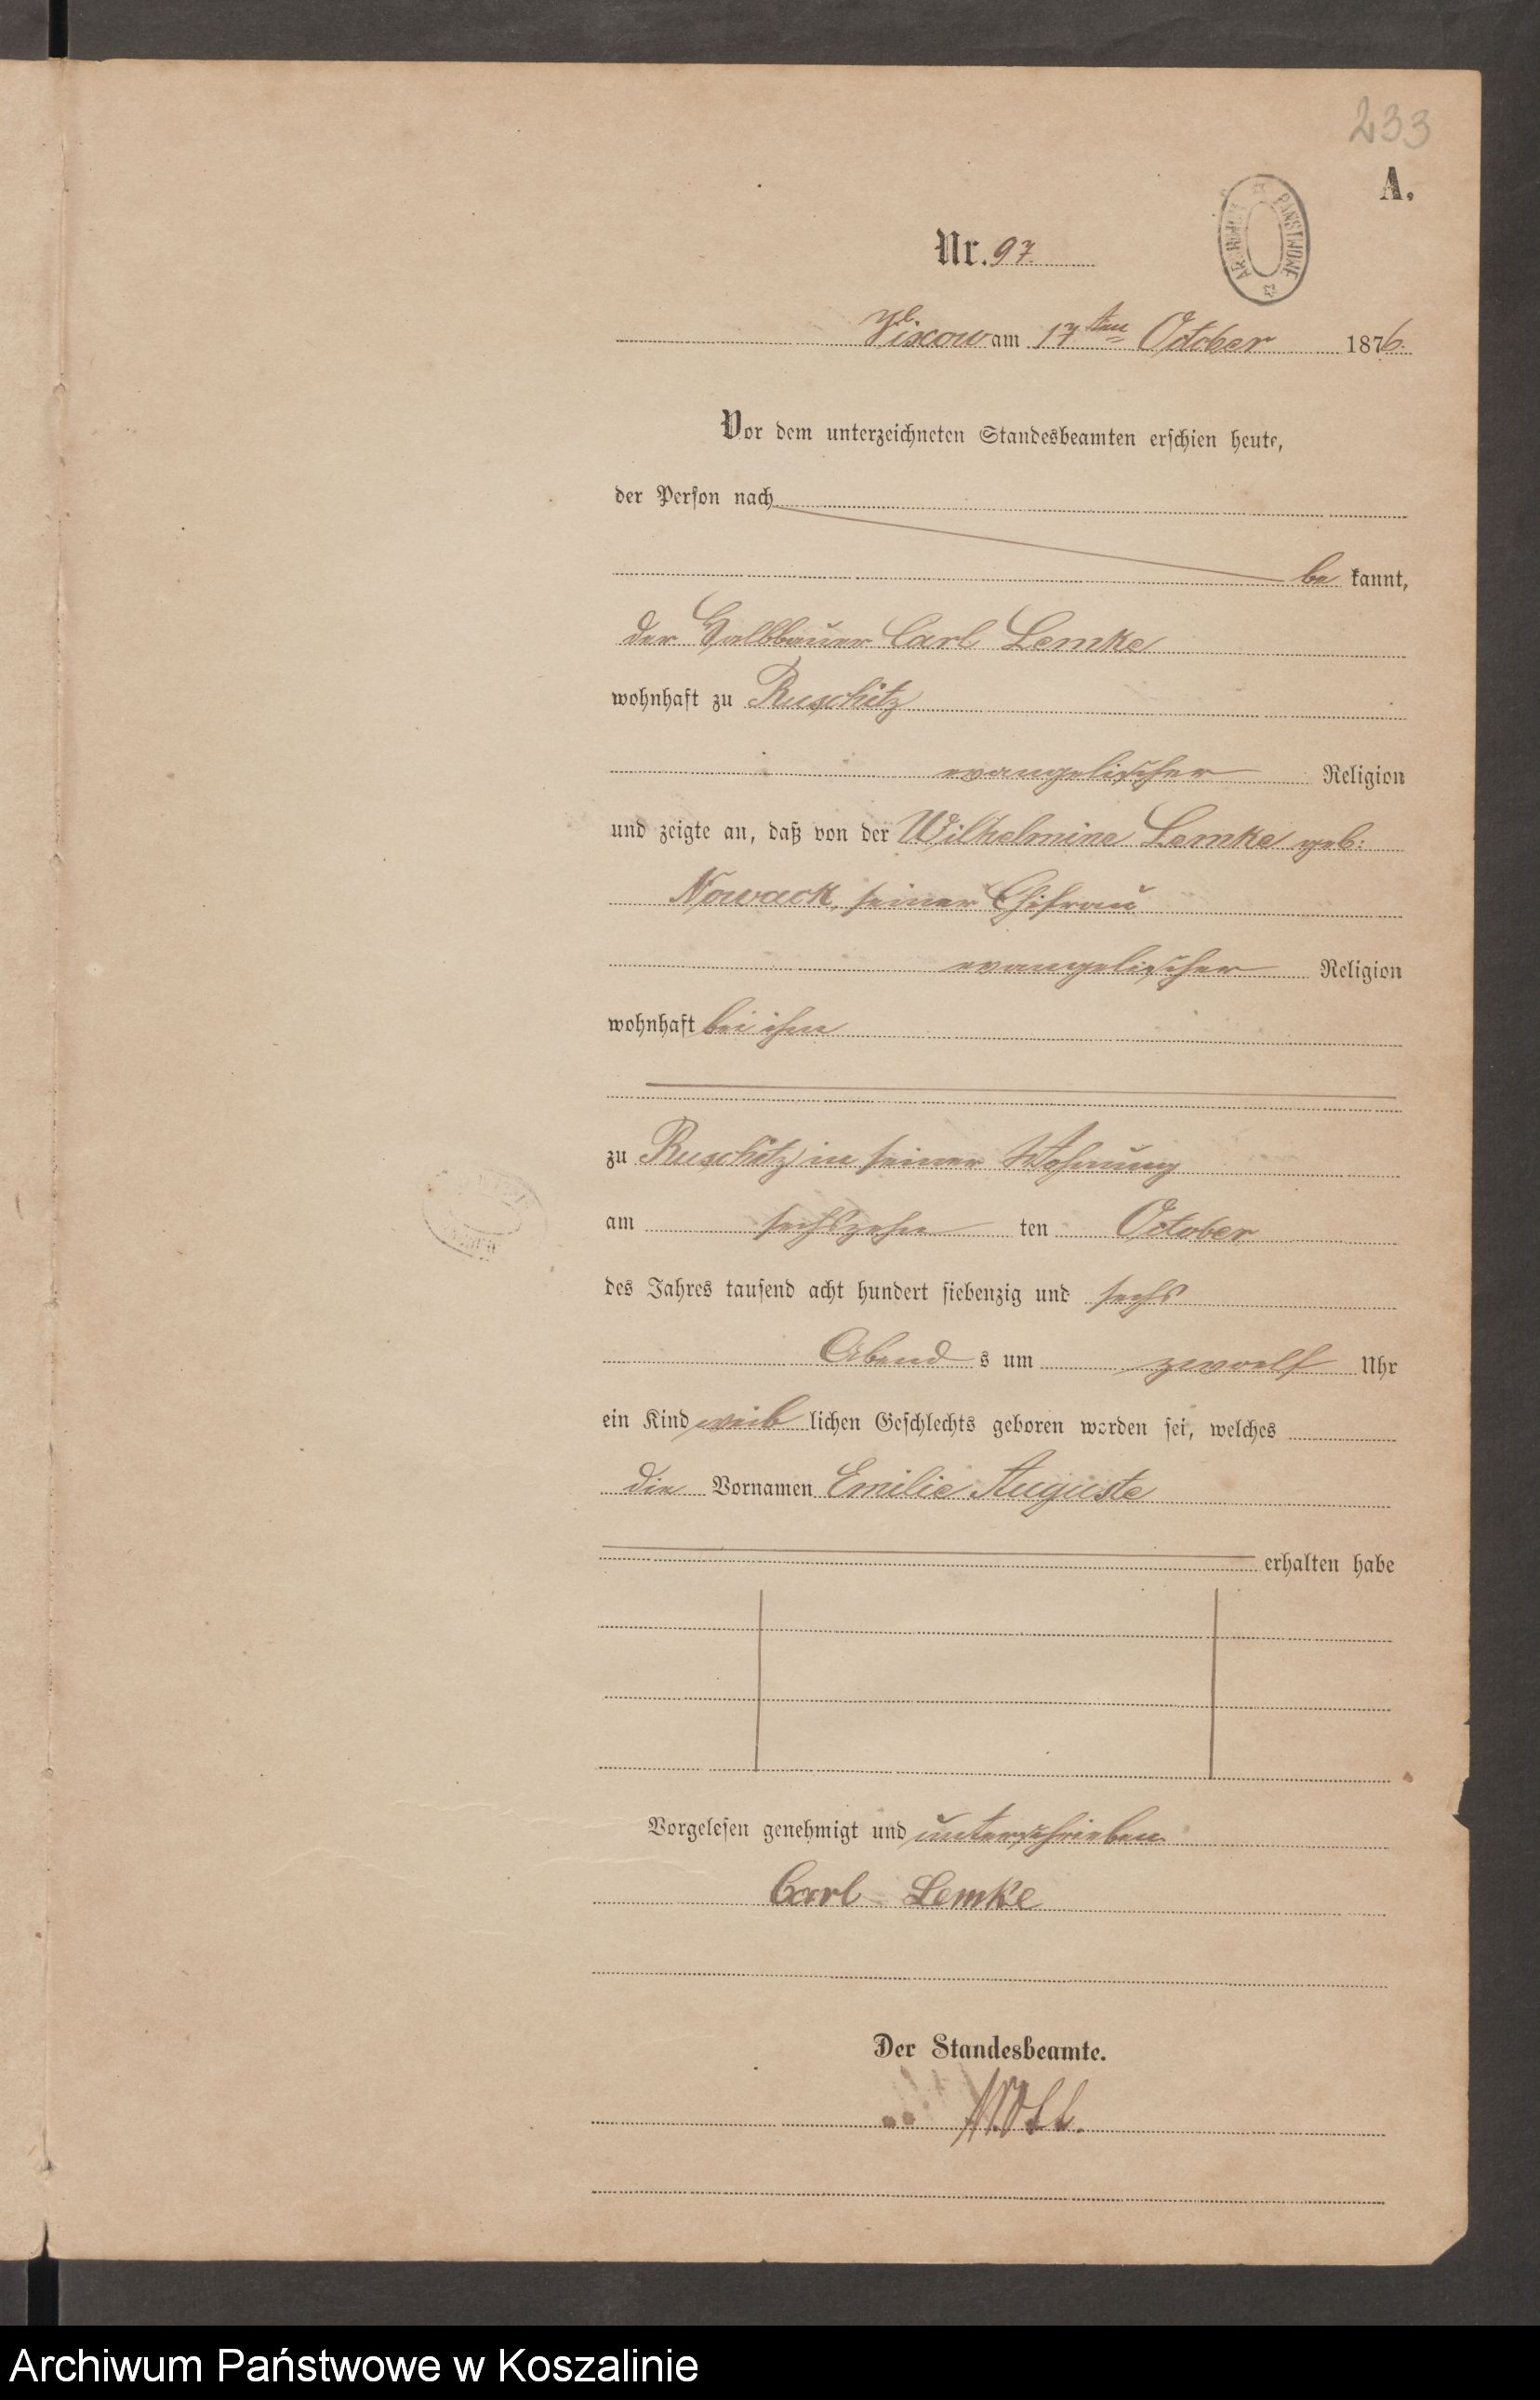 233
A.
ARCHIWUM PAŃSTWOWE
Nr. 97.
Vixow am 17ten October 1876.
Vor dem unterzeichneten Standesbeamten erschien heute,
der Person nach
be kannt,
der Halbbauer Carl Lemke
wohnhaft zu Ruschütz
evangelischer Religion
und zeigte an, daß von der Wilhelmine Lemke geb:
Nowack, seiner Ehefrau
evangelischer Religion
wohnhaft bei ihm
zu Ruschütz in seiner Wohnung
am sechszehn ten October
des Jahres tausend acht hundert siebenzig und sechs
Abend s um zwoelf Uhr
ein Kind weib lichen Geschlechts geboren worden sei, welches
die Vornamen Emilie Auguste
erhalten habe
Vorgelesen genehmigt und unterschrieben
Carl Lemke
Der Standesbeamte.
Archiwum Państwowe w Koszalinie